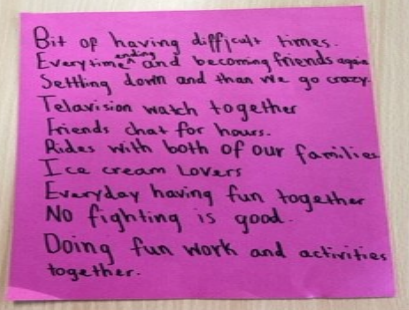 Bit of having difficult times.
Everytime ending and becoming friends again
Settling down and than we go crazy.
Telavision watch together
Friends chat for hours.
Rides with both of our families
Ice cream Lovers
Everyday having fun together
No fighting is good.
Doing fun work and activities
together.